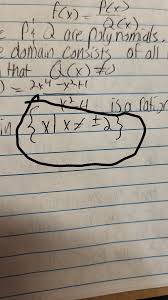 f(x) = P(x)
Q(x)
P & Q are polynomials.
e domain consists of all
that Q(x) ≠ 0
) = 2x⁴ - x² + 1
x² - 4 is a ratio
in {x | x ≠ ± 2}